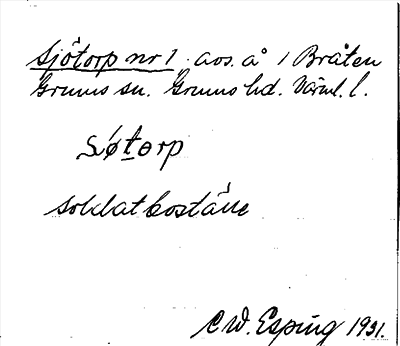 Sjötorp nr 1 avs. å 1 Bråten
Grums sn. Grums hd. Värml. l.
söt̲orp
soldatboställe
C W. Esping 1931.